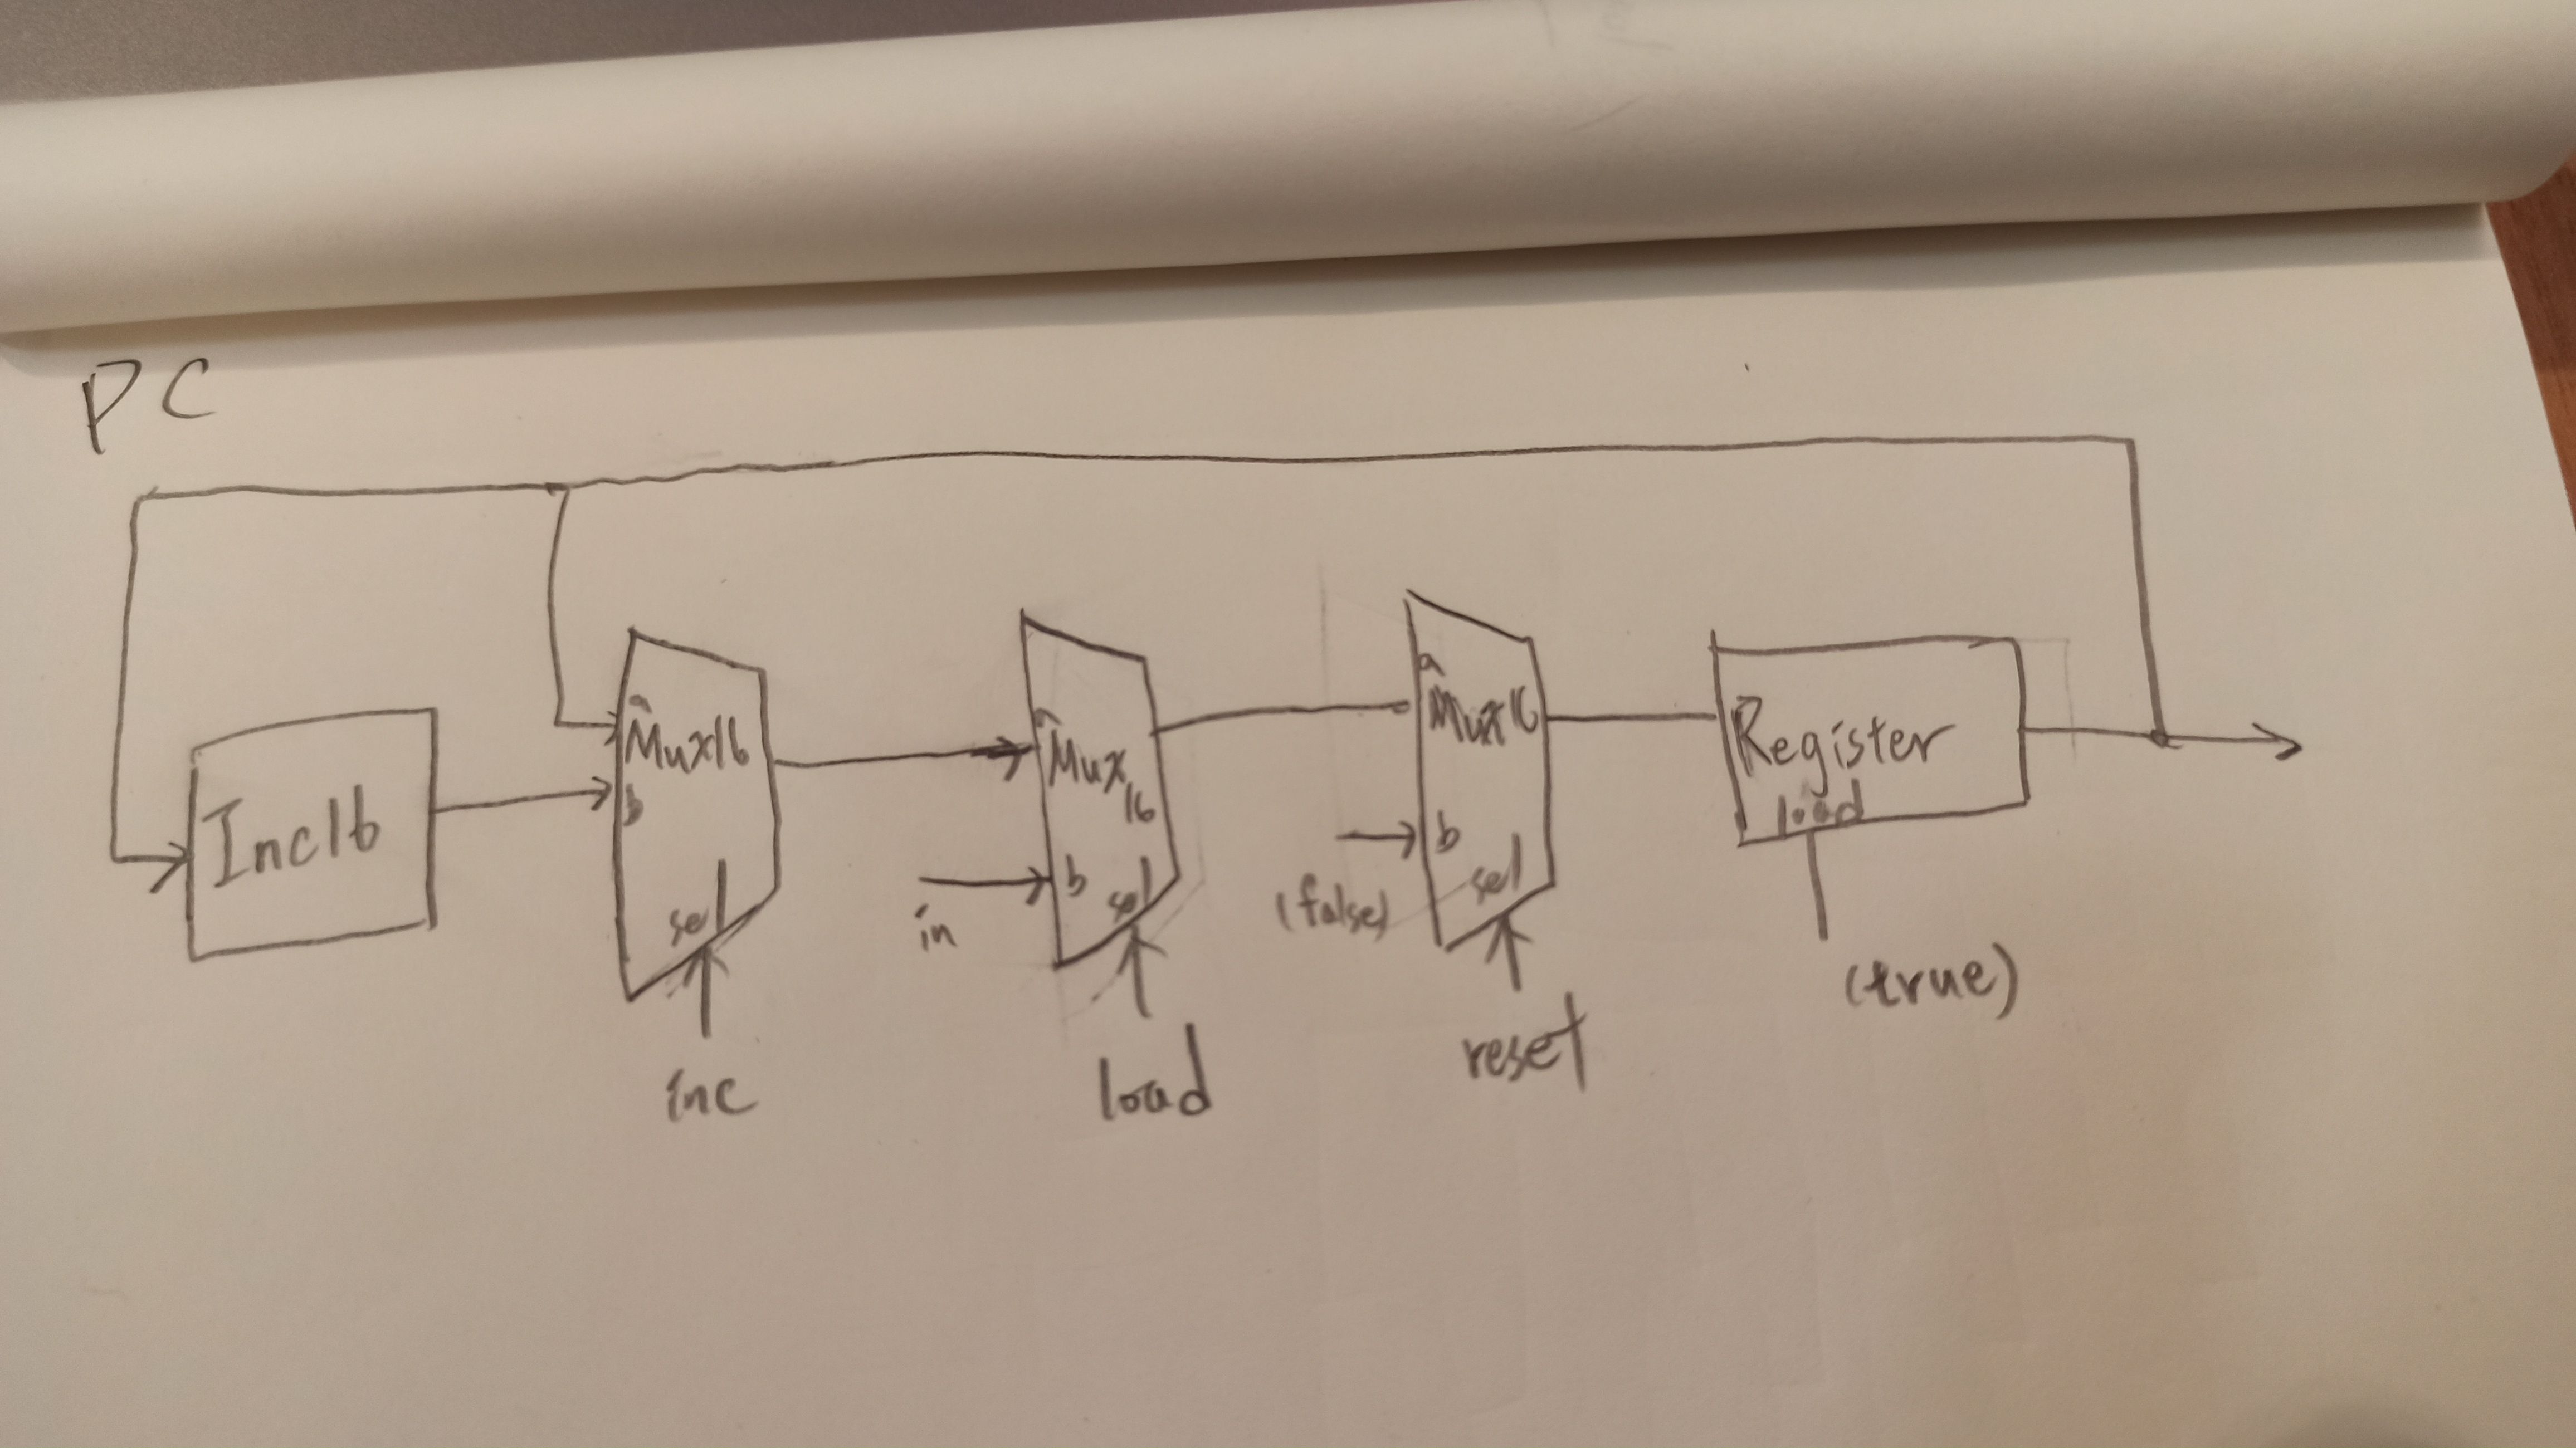 PC
Inc16
a
Mux16
b
sel
inc
a
Mux
16
b
sel
in
load
a
Mux16
b
sel
(false)
reset
Register
load
(true)